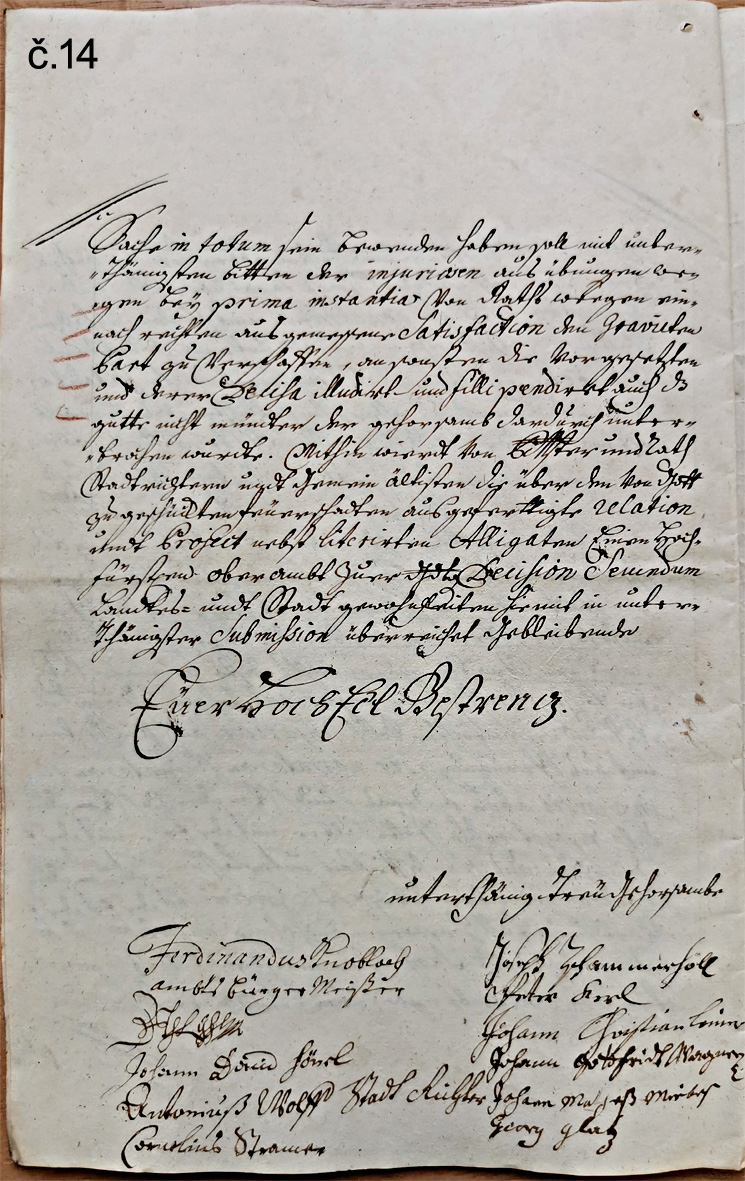 č.14
Sache in totum sein bewenden haben soll mit unter-
thänigsten bitten der injuriosen ausübungen we-
gen bey prima instantia Von Raths weegen ein
nach rechten ausgemessene Satisfaction den Gravirten
Part zu Verschaffen, ansonsten die Vorgesetzten
und derer Befehl illudirt und fillipendirt auch
gutte nicht münder der gehorsamb dardurch unter-
brochen wurdte. Mithin wierdt Von und Rath
Stadtrichtern undt Gemein ältisten die über den Von Gott
zu geschückten feüerschaden ausgeferttigte relation
undt Project nebst literirten Alligaten Einen Hoch-
fürstl. oberambt Zuer Decision Secundum
Landtes- undt Stadt gewohnheiten hiemit in unter-
thänigster Submission überreichet Gebleibende
Euer Hoch Edl Gestreng.
unterthänig Treü Gehorsambe
Ferdinandus Knobloch
ambts bürger Meister
Johann David
Antoniuß Wolff Stadt Richter
Cornelius Stramer
Joseph
Peter Kerl
Johann Christian
Johann Gottfriedt Wagner
Johann
Georg Glatz